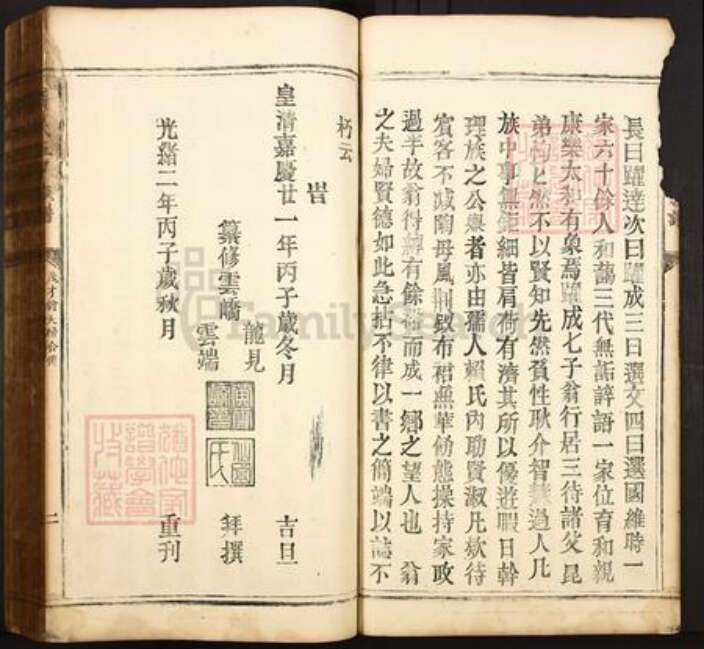 長曰躍達次曰躍成三曰選文四曰選國維時一
家六十餘人和藹三代無詬誶語一家位育和親
康樂太和有象焉躍成七子翁行居三待諸父昆
弟均匕然不以賢知先然賁性耿介智慧過人凡
族中事無鉅細皆肩荷有濟其所以優遊暇日幹
理族之公舉者亦由孺人賴氏內助賢淑凡欵待
賓客不减陶母風荆釵布裙無華飾態操持家政
過半故翁得綽有餘裕而成一鄉之望人也 翁
之夫婦賢德如此急拈不律以書之簡端以誌不
朽云
旹
皇清嘉慶廿一年丙子歲冬月 吉旦
纂修雲嶠 龍見 雲端 拜撰
光緒二年丙子歲秋月 重刊
FamilySearch